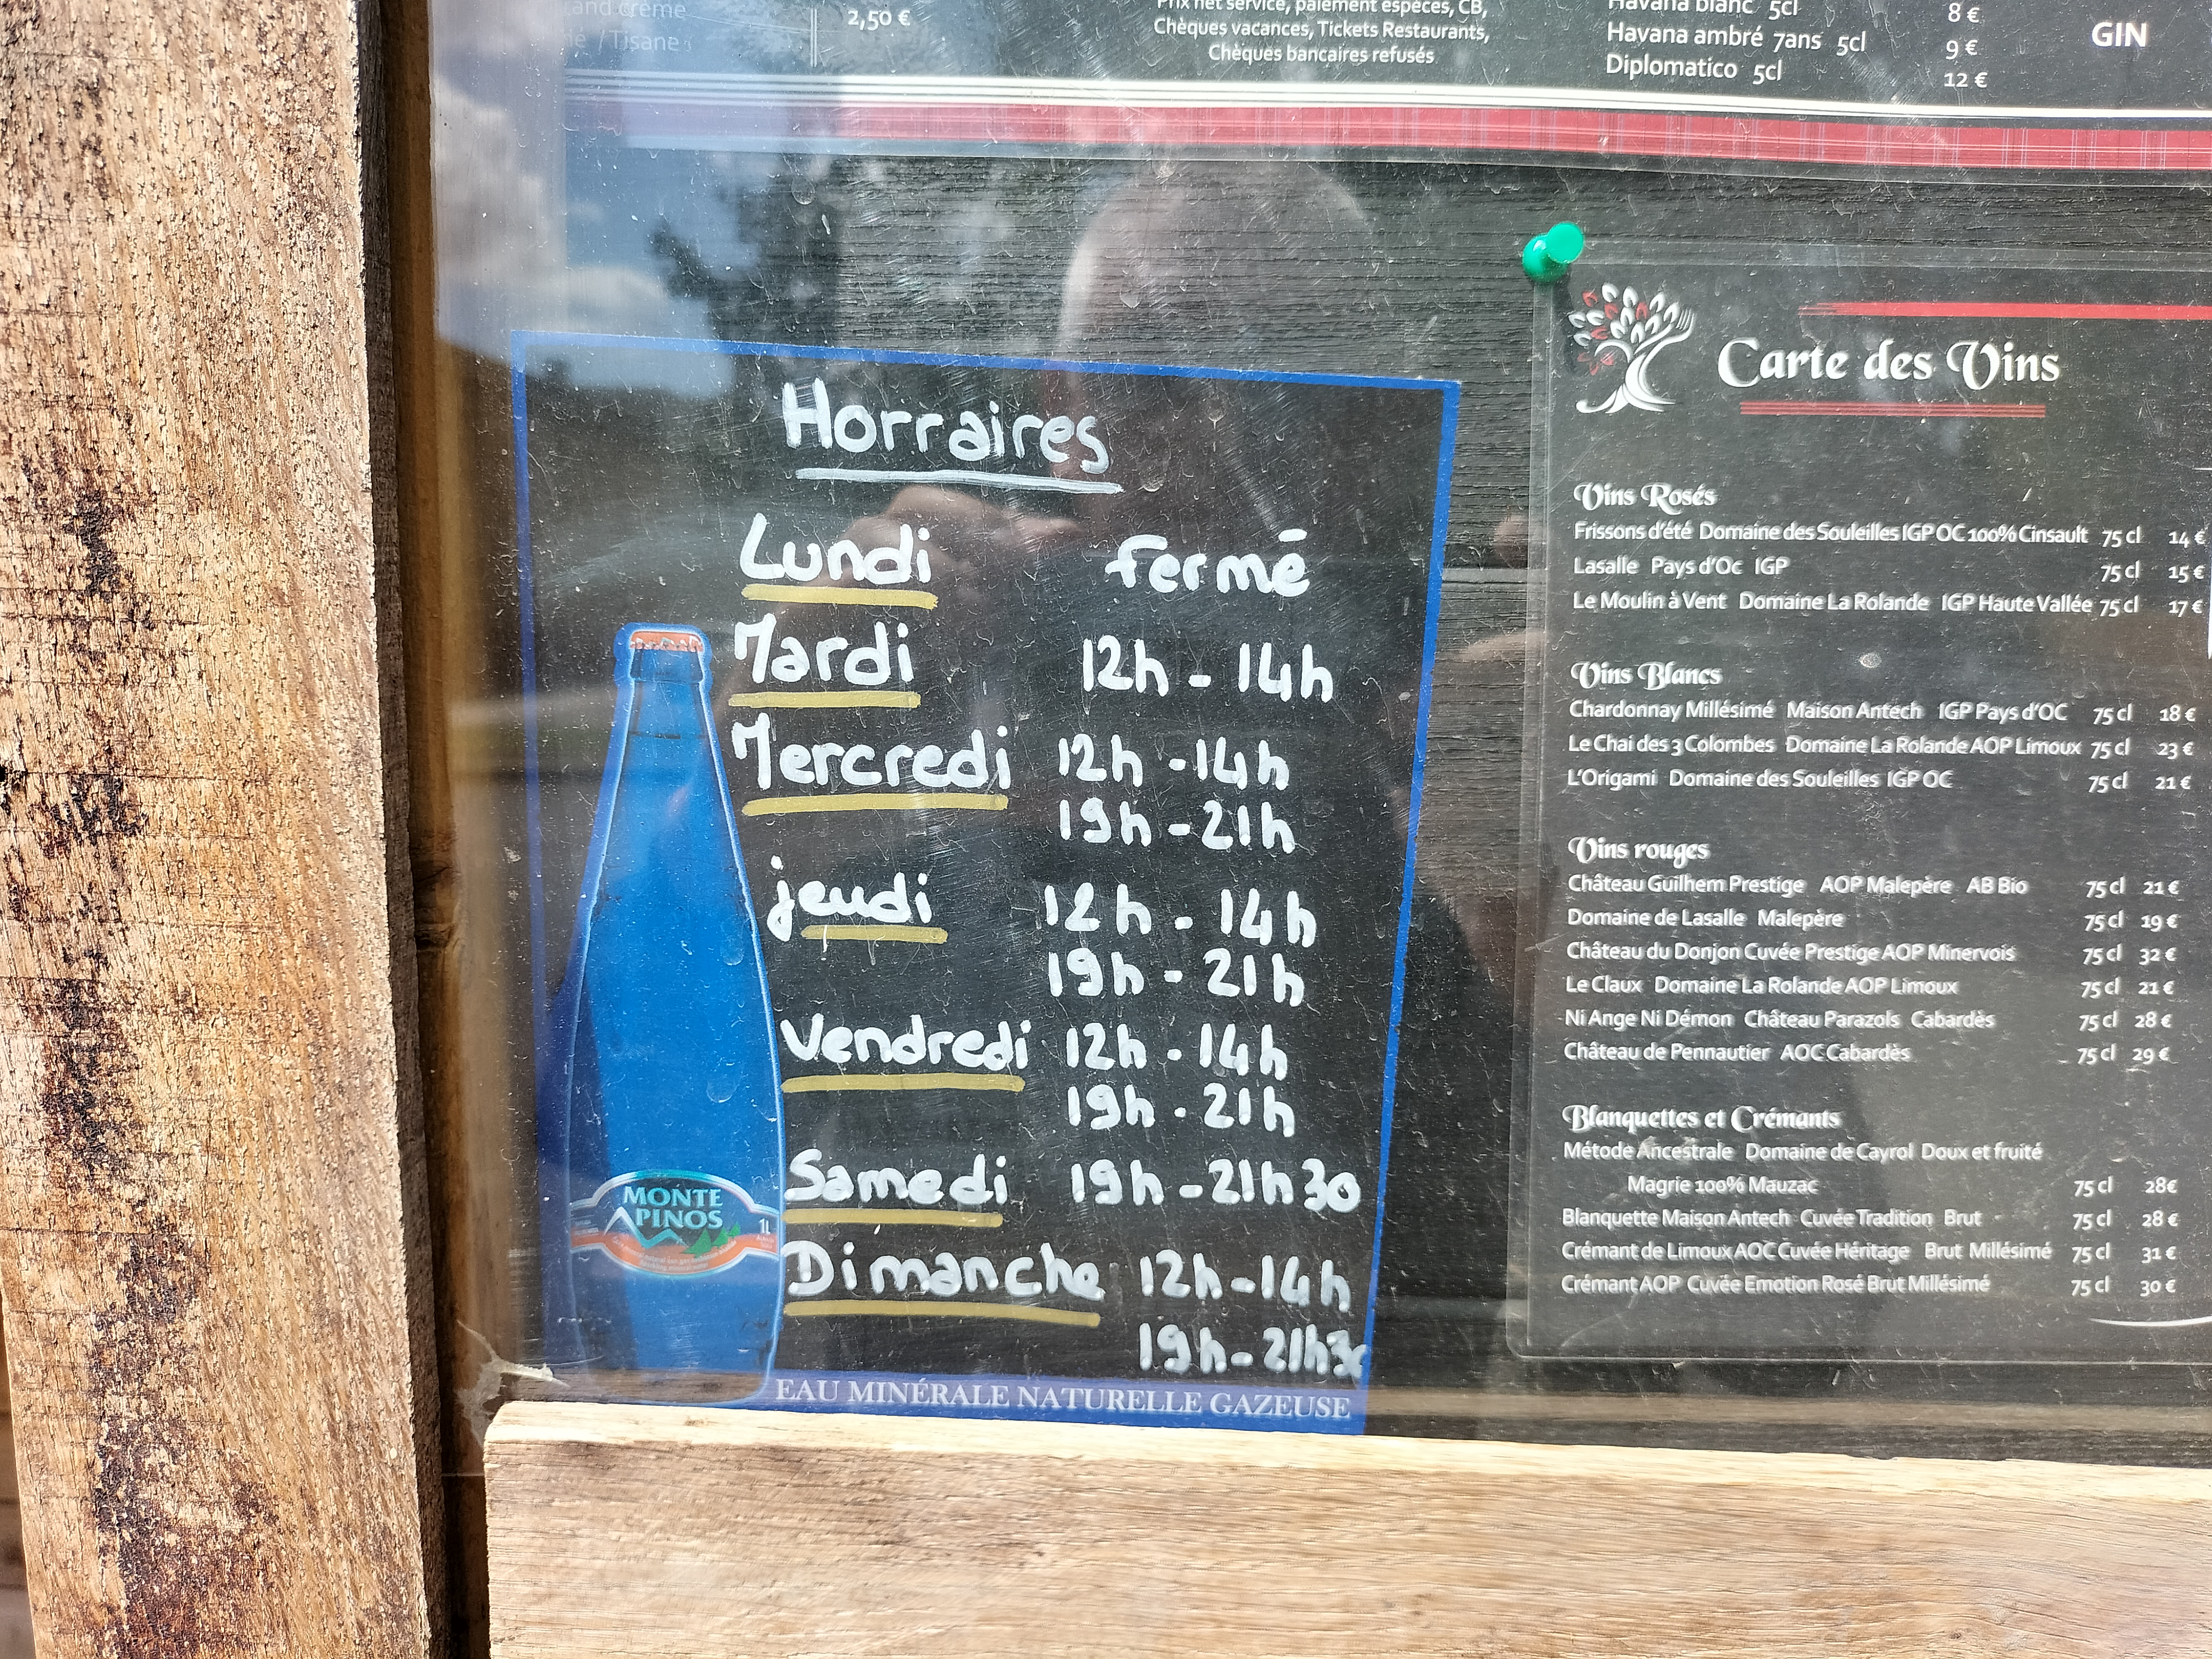 and crème
/ Tisane
2,50 €
Prix net service, paiement espèces, CB,
Chèques vacances, Tickets Restaurants,
Chèques bancaires refusés
Havana blanc 5cl 8 €
Havana ambré 7ans 5cl 9 €
Diplomatico 5cl 12 €
GIN
Horraires
Lundi fermé
Mardi 12h - 14h
Mercredi 12h - 14h
19h - 21h
jeudi 12h - 14h
19h - 21h
Vendredi 12h - 14h
19h - 21h
Samedi 19h - 21h30
Dimanche 12h - 14h
19h - 21h30
MONTE
PINOS
1L
EAU MINÉRALE NATURELLE GAZEUSE
Carte des Vins
Vins Rosés
Frissons d'été Domaine des Souleilles IGP OC 100% Cinsault 75 cl 14 €
Lasalle Pays d'Oc IGP 75 cl 15 €
Le Moulin à Vent Domaine La Rolande IGP Haute Vallée 75 cl 17 €
Vins Blancs
Chardonnay Millésimé Maison Antech IGP Pays d'OC 75 cl 18 €
Le Chai des 3 Colombes Domaine La Rolande AOP Limoux 75 cl 23 €
L'Origami Domaine des Souleilles IGP OC 75 cl 21 €
Vins rouges
Château Guilhem Prestige AOP Malepère AB Bio 75 cl 21 €
Domaine de Lasalle Malepère 75 cl 19 €
Château du Donjon Cuvée Prestige AOP Minervois 75 cl 32 €
Le Claux Domaine La Rolande AOP Limoux 75 cl 21 €
Ni Ange Ni Démon Château Parazols Cabardès 75 cl 28 €
Château de Pennautier AOC Cabardès 75 cl 29 €
Blanquettes et Crémants
Métode Ancestrale Domaine de Cayrol Doux et fruité
Magrie 100% Mauzac 75 cl 28€
Blanquette Maison Antech Cuvée Tradition Brut 75 cl 28 €
Crémant de Limoux AOC Cuvée Héritage Brut Millésimé 75 cl 31 €
Crémant AOP Cuvée Emotion Rosé Brut Millésimé 75 cl 30 €